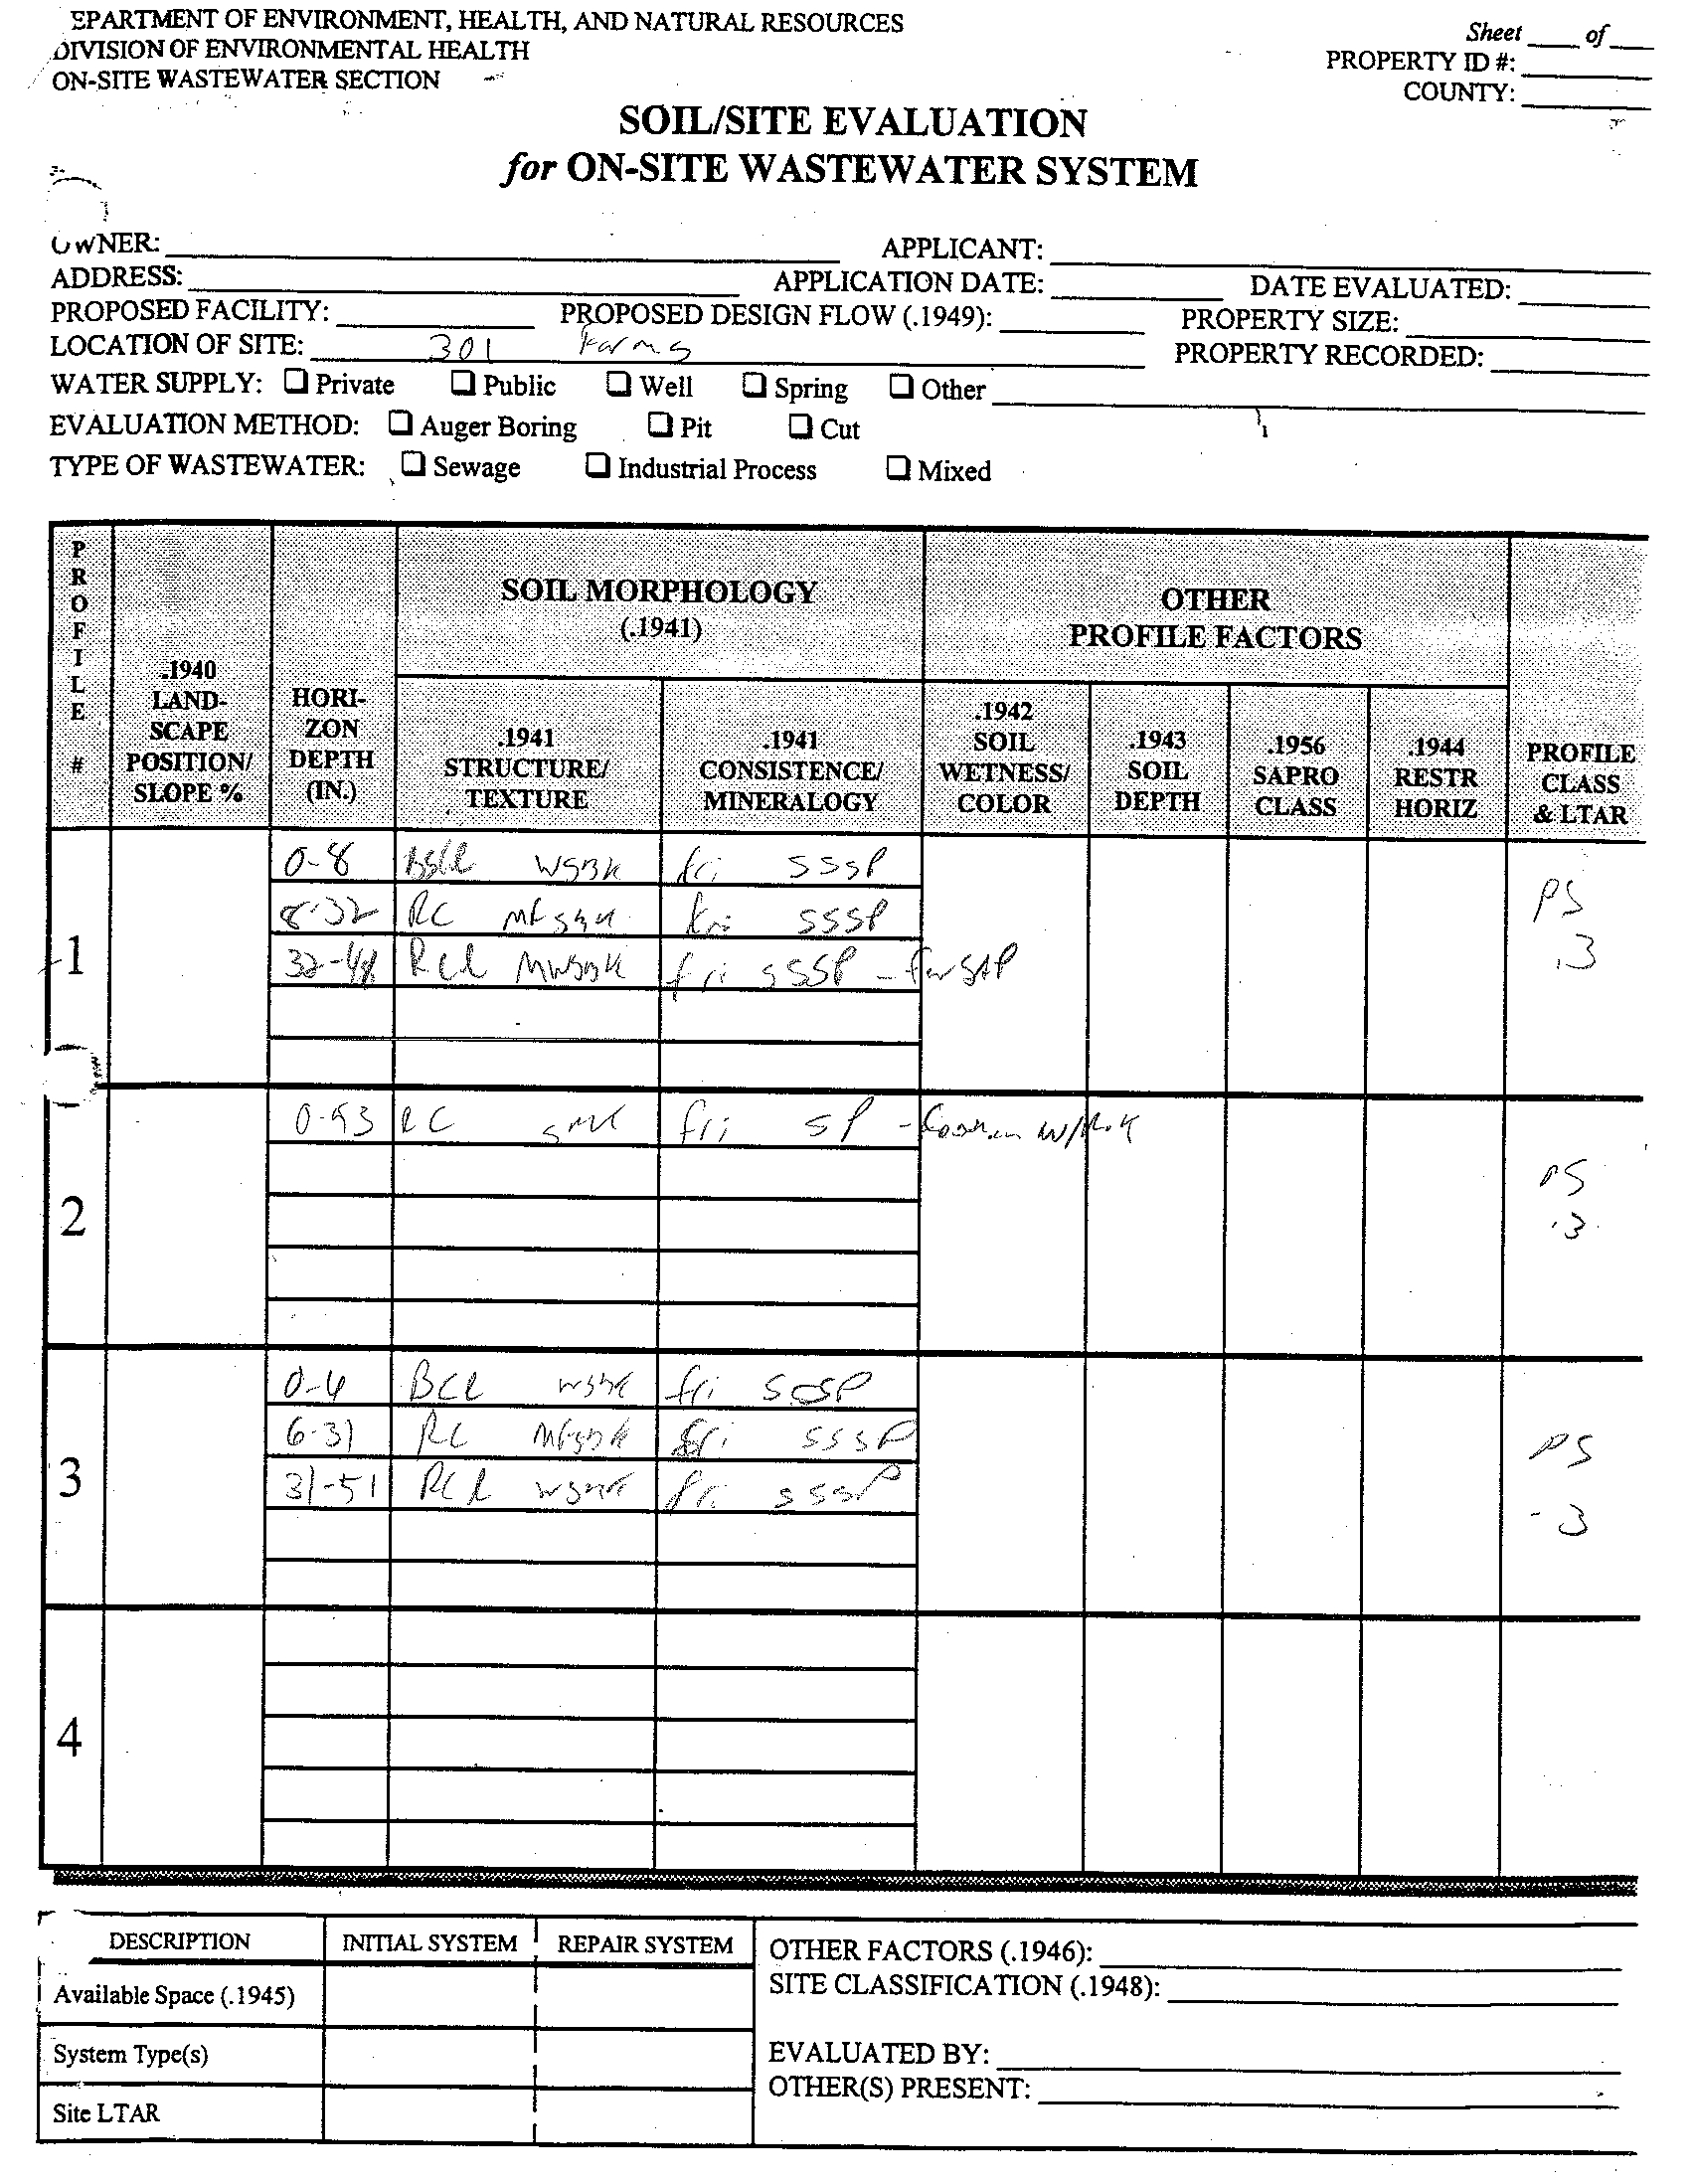 EPARTMENT OF ENVIRONMENT, HEALTH, AND NATURAL RESOURCES
DIVISION OF ENVIRONMENTAL HEALTH
ON-SITE WASTEWATER SECTION
Sheet ____ of ____
PROPERTY ID #:
COUNTY:
SOIL/SITE EVALUATION
for ON-SITE WASTEWATER SYSTEM
OWNER: APPLICANT:
ADDRESS: APPLICATION DATE: DATE EVALUATED:
PROPOSED FACILITY: PROPOSED DESIGN FLOW (.1949): PROPERTY SIZE:
LOCATION OF SITE: 301 Farms PROPERTY RECORDED:
WATER SUPPLY: ☐ Private ☐ Public ☐ Well ☐ Spring ☐ Other
EVALUATION METHOD: ☐ Auger Boring ☐ Pit ☐ Cut
TYPE OF WASTEWATER: ☐ Sewage ☐ Industrial Process ☐ Mixed
PROFILE #
.1940
LAND-
SCAPE
POSITION/
SLOPE %
HORI-
ZON
DEPTH
(IN.)
SOIL MORPHOLOGY
(.1941)
.1941
STRUCTURE/
TEXTURE
.1941
CONSISTENCE/
MINERALOGY
OTHER
PROFILE FACTORS
.1942
SOIL
WETNESS/
COLOR
.1943
SOIL
DEPTH
.1956
SAPRO
CLASS
.1944
RESTR
HORIZ
PROFILE
CLASS
& LTAR
1
0-8 WSBK fri SSSP
8-32 RC fri SSSP
32-48 RCL fri SSSP
PS
.3
2
RC fri SP
PS
.3
3
BCL fri SSSP
6-31 RC fri SSSP
31-51 RCL fri SSSP
PS
.3
4
DESCRIPTION INITIAL SYSTEM REPAIR SYSTEM
Available Space (.1945)
System Type(s)
Site LTAR
OTHER FACTORS (.1946):
SITE CLASSIFICATION (.1948):
EVALUATED BY:
OTHER(S) PRESENT: